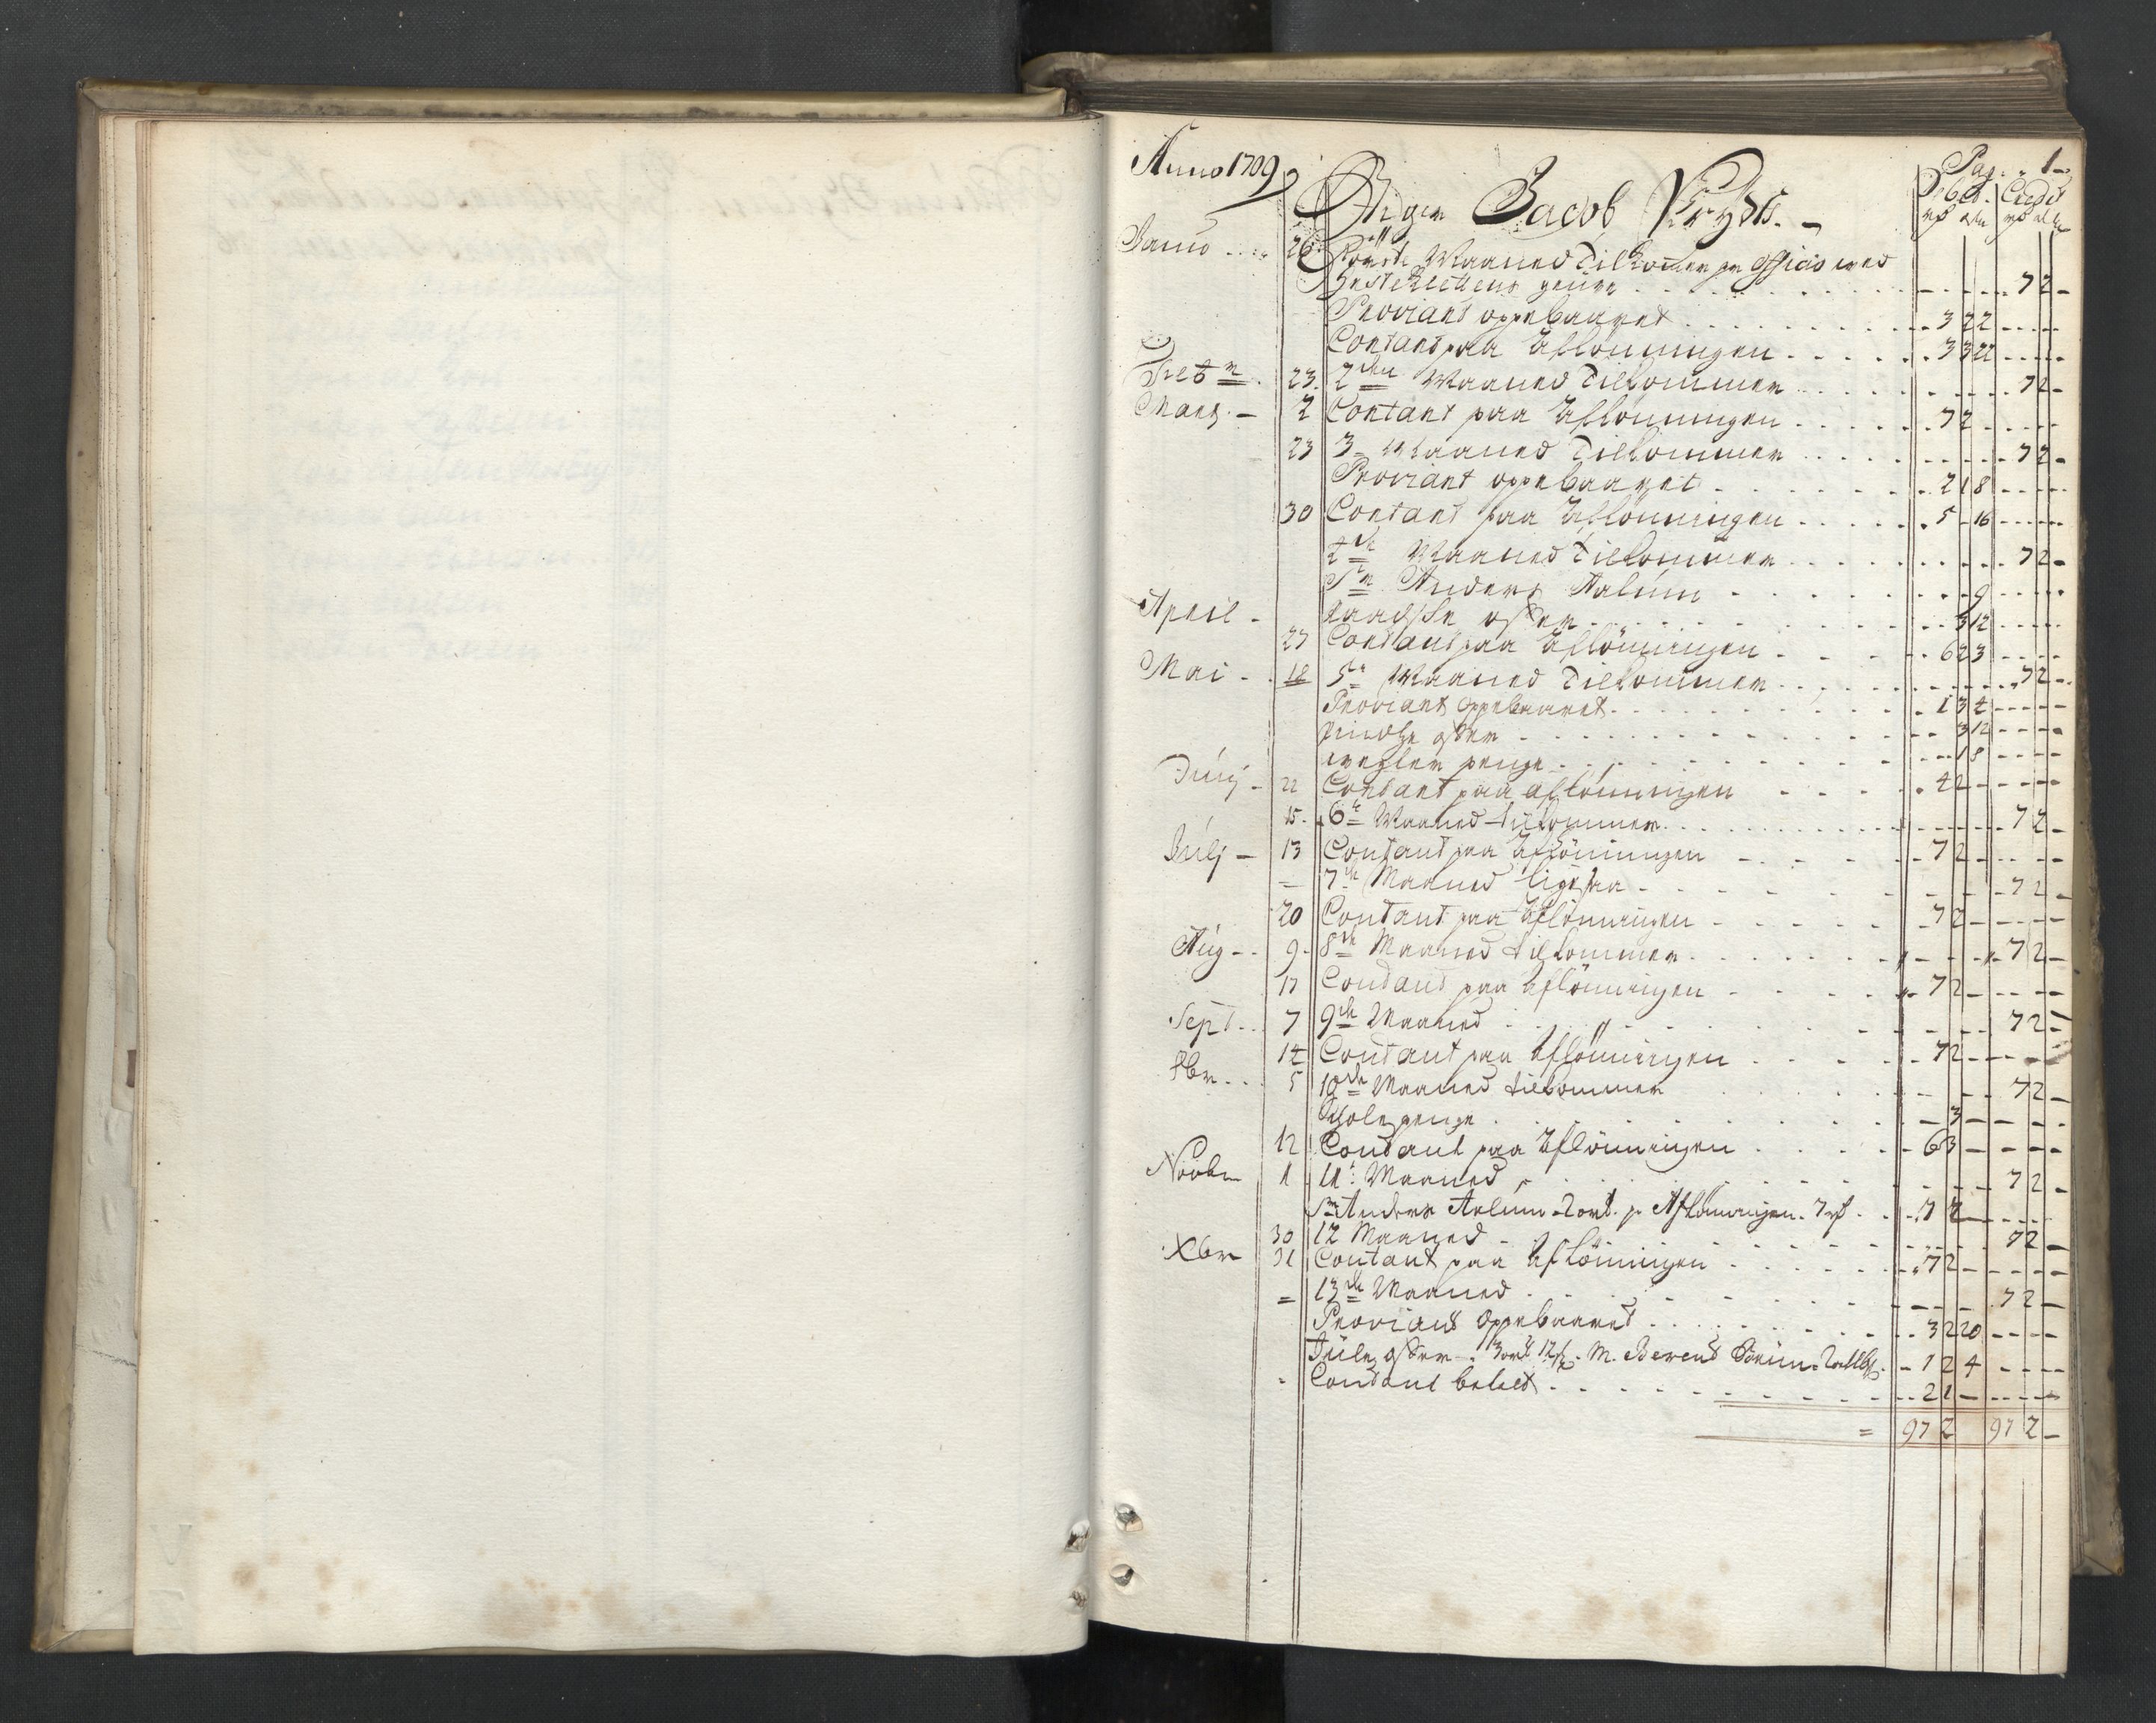 Anno 1709
Pag. 1
Jacob Krydts.
Debet. Credit
Janu 26 Første Maaned Tilkommer pr officio med
penge 7 2
Proviant oppebaaret 3 2 2
Contant paa Aflönningen 3 3 22
Febr 23. 2den Maaned Tilkommer 7 2
Marts 2 Contant paa Aflönningen 7 2
23 3 Maaned Tilkommer 7 2
Proviant oppebaaret 2 1 8
30 Contant paa Aflönningen 5 - 16
4de Maaned Tilkommer 7 2
Sr Anders Aalum 9
April offer 3 12
27 Contant paa Aflönningen 6 2 3
Mai 18 5te Maaned Tilkommer 7 2
Proviant Oppebaaret 1 3 4
Pindtze offer 3 12
penge 1 8
Junj 22 Contant paa aflönningen 4 2
15. 6te Maaned tilkommer 7 2
Julj 13 Contant paa Aflönningen 7 2
= 7de Maaned ligesaa 7 2
20 Contant paa Aflönningen 7 2
Aug 9 8de Maaned tilkommer 7 2
17 Contant paa Aflönningen 7 2
Sept 7 9de Maaned 7 2
14 Contant paa Aflönningen 7 2
8br 5 10de Maaned tilkommer 7 2
penge 3
12 Contant paa Aflönningen 6 3
Novbr 1 11t Maaned 7 2
Sr Anders Aalum 2 ort. p Aflönningen. 7 rd 7 2
30 12 Maaned 7 2
Xbr 31 Contant paa Aflönningen 7 2
= 13de Maaned 7 2
Proviant Oppebaaret 3 2 20
Jule offer 3 ort M. Berent 1 2 4
Contant betalt 2 1
= 97 2 97 2